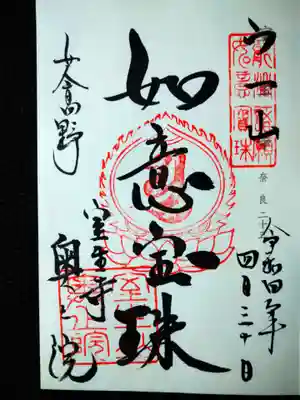 宀一山
奈良二十
令和四年
四月三十日
如意宝珠
女人高野
室生寺
奥之院